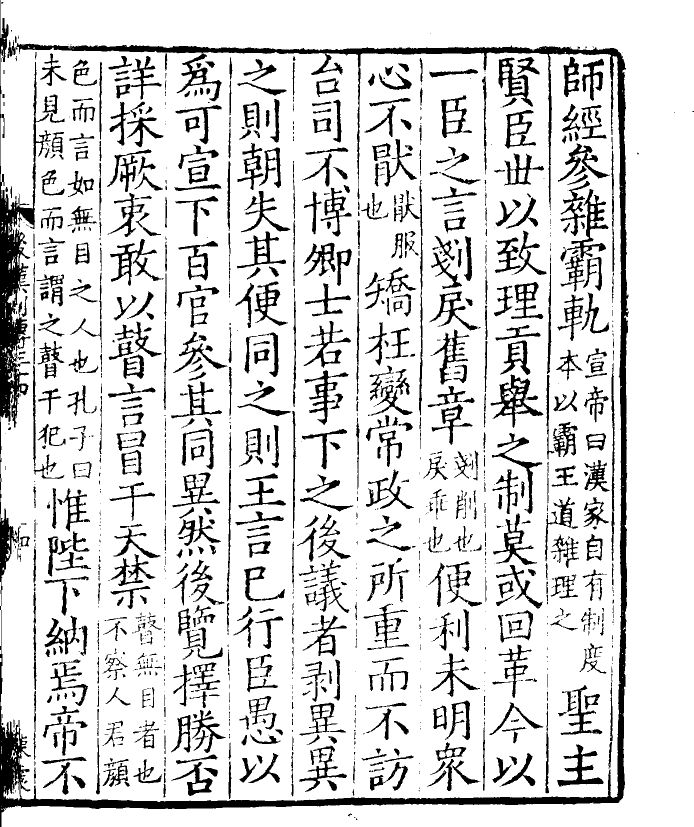 師經參雜霸軌宣帝曰漢家自有制度本以霸王道雜理之聖主
賢臣世以致理貢舉之制莫或回革今以
一臣之言剗戾舊章剗削也戾乖也便利未明衆
心不猒猒服也矯枉變常政之所重而不訪
台司不博卿士若事下之後議者剥異異
之則朝失其便同之則王言已行臣愚以
爲可宣下百官參其同異然後覽擇勝否
詳採厥衷敢以瞽言冒干天禁瞽無目者也不察人君顔
色而言如無目之人也孔子曰未見顔色而言謂之瞽干犯也惟陛下納焉帝不